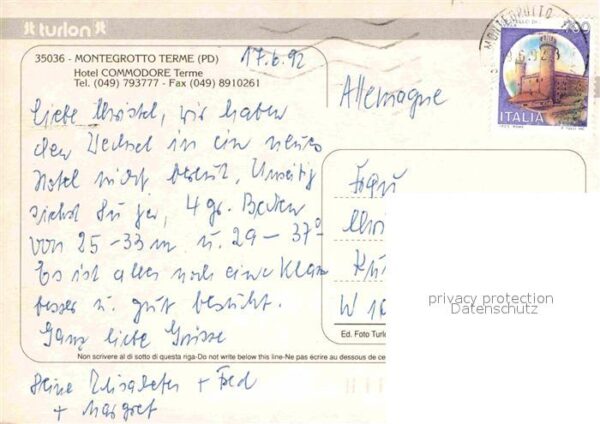 turlon
35036 - MONTEGROTTO TERME (PD)
Hotel COMMODORE Terme
Tel. (049) 793777 - Fax (049) 8910261
17.6.92
Liebe Christel, wir haben
den Wechsel in ein neues
Hotel nicht bereut,
siehst Du ja, 4 gr. Becken
von 25-33 m u. 29-37°
Es ist alles noch eine Klasse
besser u. gut besucht.
Ganz liebe Grüsse
Non scrivere al di sotto di questa riga-Do not write below this line-Ne pas écrire au dessous de ce
Deine Elisabeth + Fred
+ Margret
Allemagne
MONTEGROTTO
ITALIA
Frau
W
Ed. Foto Turlo
privacy protection
Datenschutz